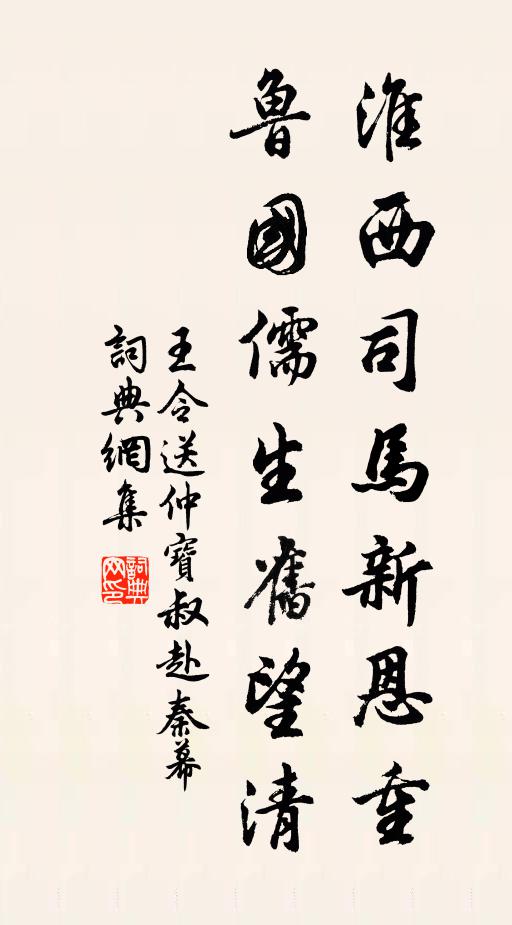 淮西司馬新恩重
魯國儒生舊望清
王令送仲寶叔赴秦幕
詞典網集
詞典網印